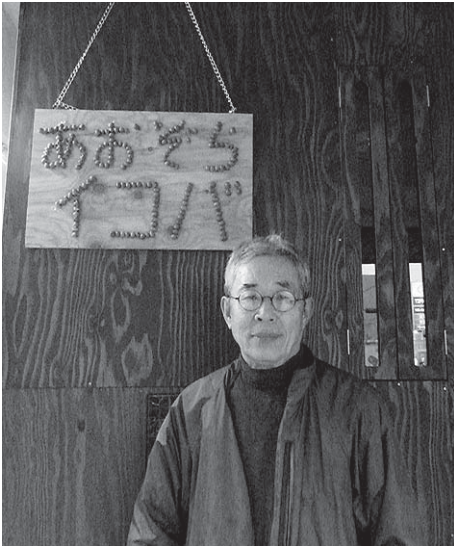 あおぞら
イコバ